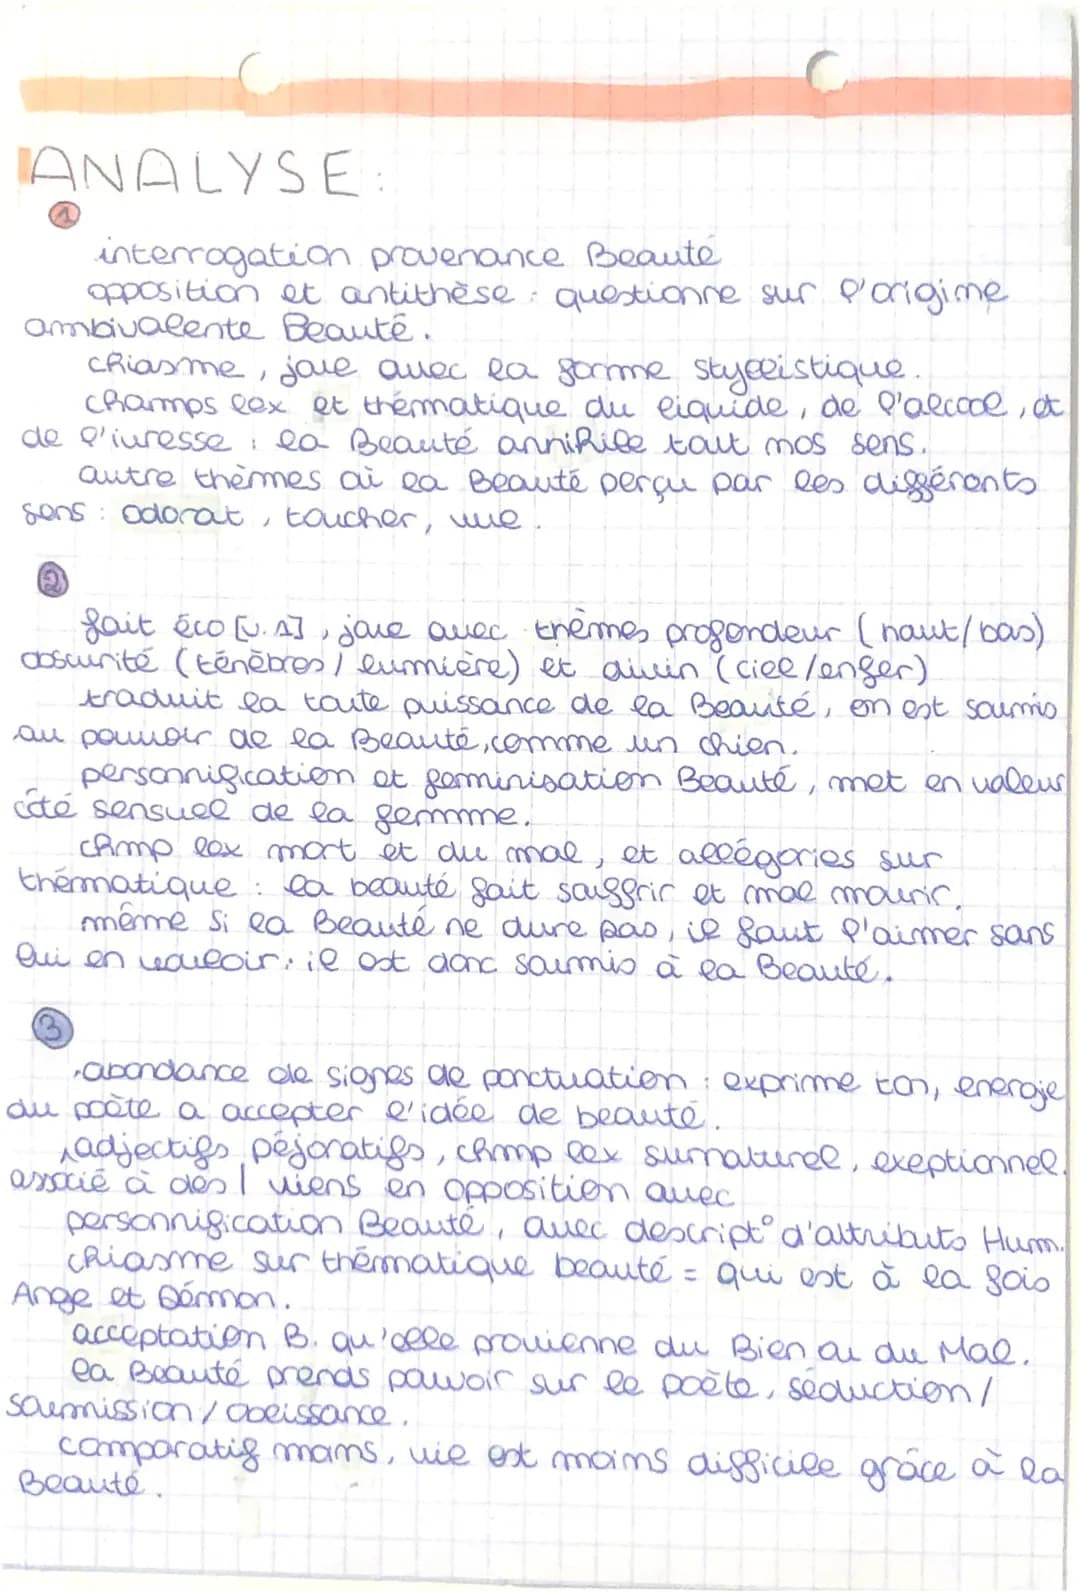 ANALYSE :
1
interrogation provenance Beauté
opposition et antithèse : questionne sur l'origine
ambivalente Beauté.
chiasme, joue avec la forme stylistique.
champs lex et thématique du liquide, de l'alcool, et
de l'ivresse : la Beauté annihile tout nos sens.
autre thèmes où la Beauté perçu par les différents
sens : odorat, toucher, vue.
2
fait éco [v.1], joue avec thèmes profondeur (haut/bas)
obscurité (ténèbres/lumière) et divin (ciel/enfer)
traduit la toute puissance de la Beauté, on est soumis
au pouvoir de la Beauté, comme un chien.
personnification et féminisation Beauté, met en valeur
côté sensuel de la femme.
chmp lex mort et du mal, et allégories sur
thématique : la beauté fait souffrir et mal mourir.
même si la Beauté ne dure pas, il faut l'aimer sans
lui en vouloir : il est donc soumis à la Beauté.
3
abondance de signes de ponctuation : exprime ton, energie
du poète a accepter l'idée de beauté.
adjectifs péjoratifs, chmp lex surnaturel, exeptionnel.
associé à des viens en opposition avec
personnification Beauté, avec descript° d'attributs Hum.
chiasme sur thématique beauté = qui est à la fois
Ange et Démon.
acceptation B. qu'elle provienne du Bien ou du Mal.
la Beauté prends pouvoir sur le poète, séduction/
soumission/obeissance.
comparatif moins, vie est moins difficile grâce à la
Beauté.